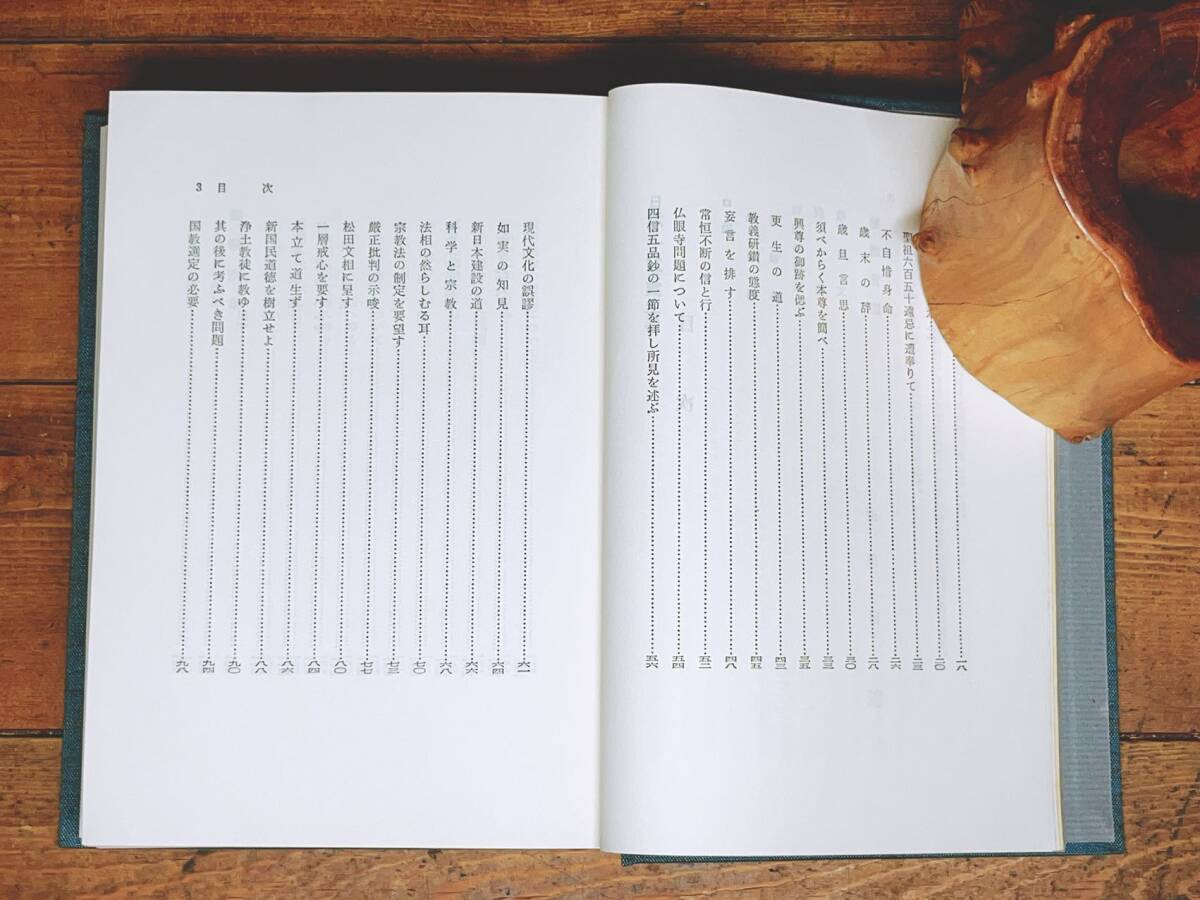 一八
二〇
聖祖六百五十遠忌に遭奉りて……二三
不自惜身命……二六
歳末の辞……二八
歳旦言思……三〇
須べからく本尊を簡べ……三三
興尊の御跡を偲ぶ……三五
更生の道……四三
教義研鑽の態度……四五
妄言を排す……四八
常恒不断の信と行……五二
仏眼寺問題について……五四
四信五品鈔の一節を拝し所見を述ぶ……五六
3 目 次
現代文化の誤謬……六一
如実の知見……六四
新日本建設の道……六六
科学と宗教……六八
法相の然らしむる耳……七〇
宗教法の制定を要望す……七三
厳正批判の示唆……七七
松田文相に呈す……八〇
一層戒心を要す……八四
本立て道生ず……八六
新国民道徳を樹立せよ……八八
浄土教徒に教ゆ……九〇
其の後に考ふべき問題……九四
国教選定の必要……九八